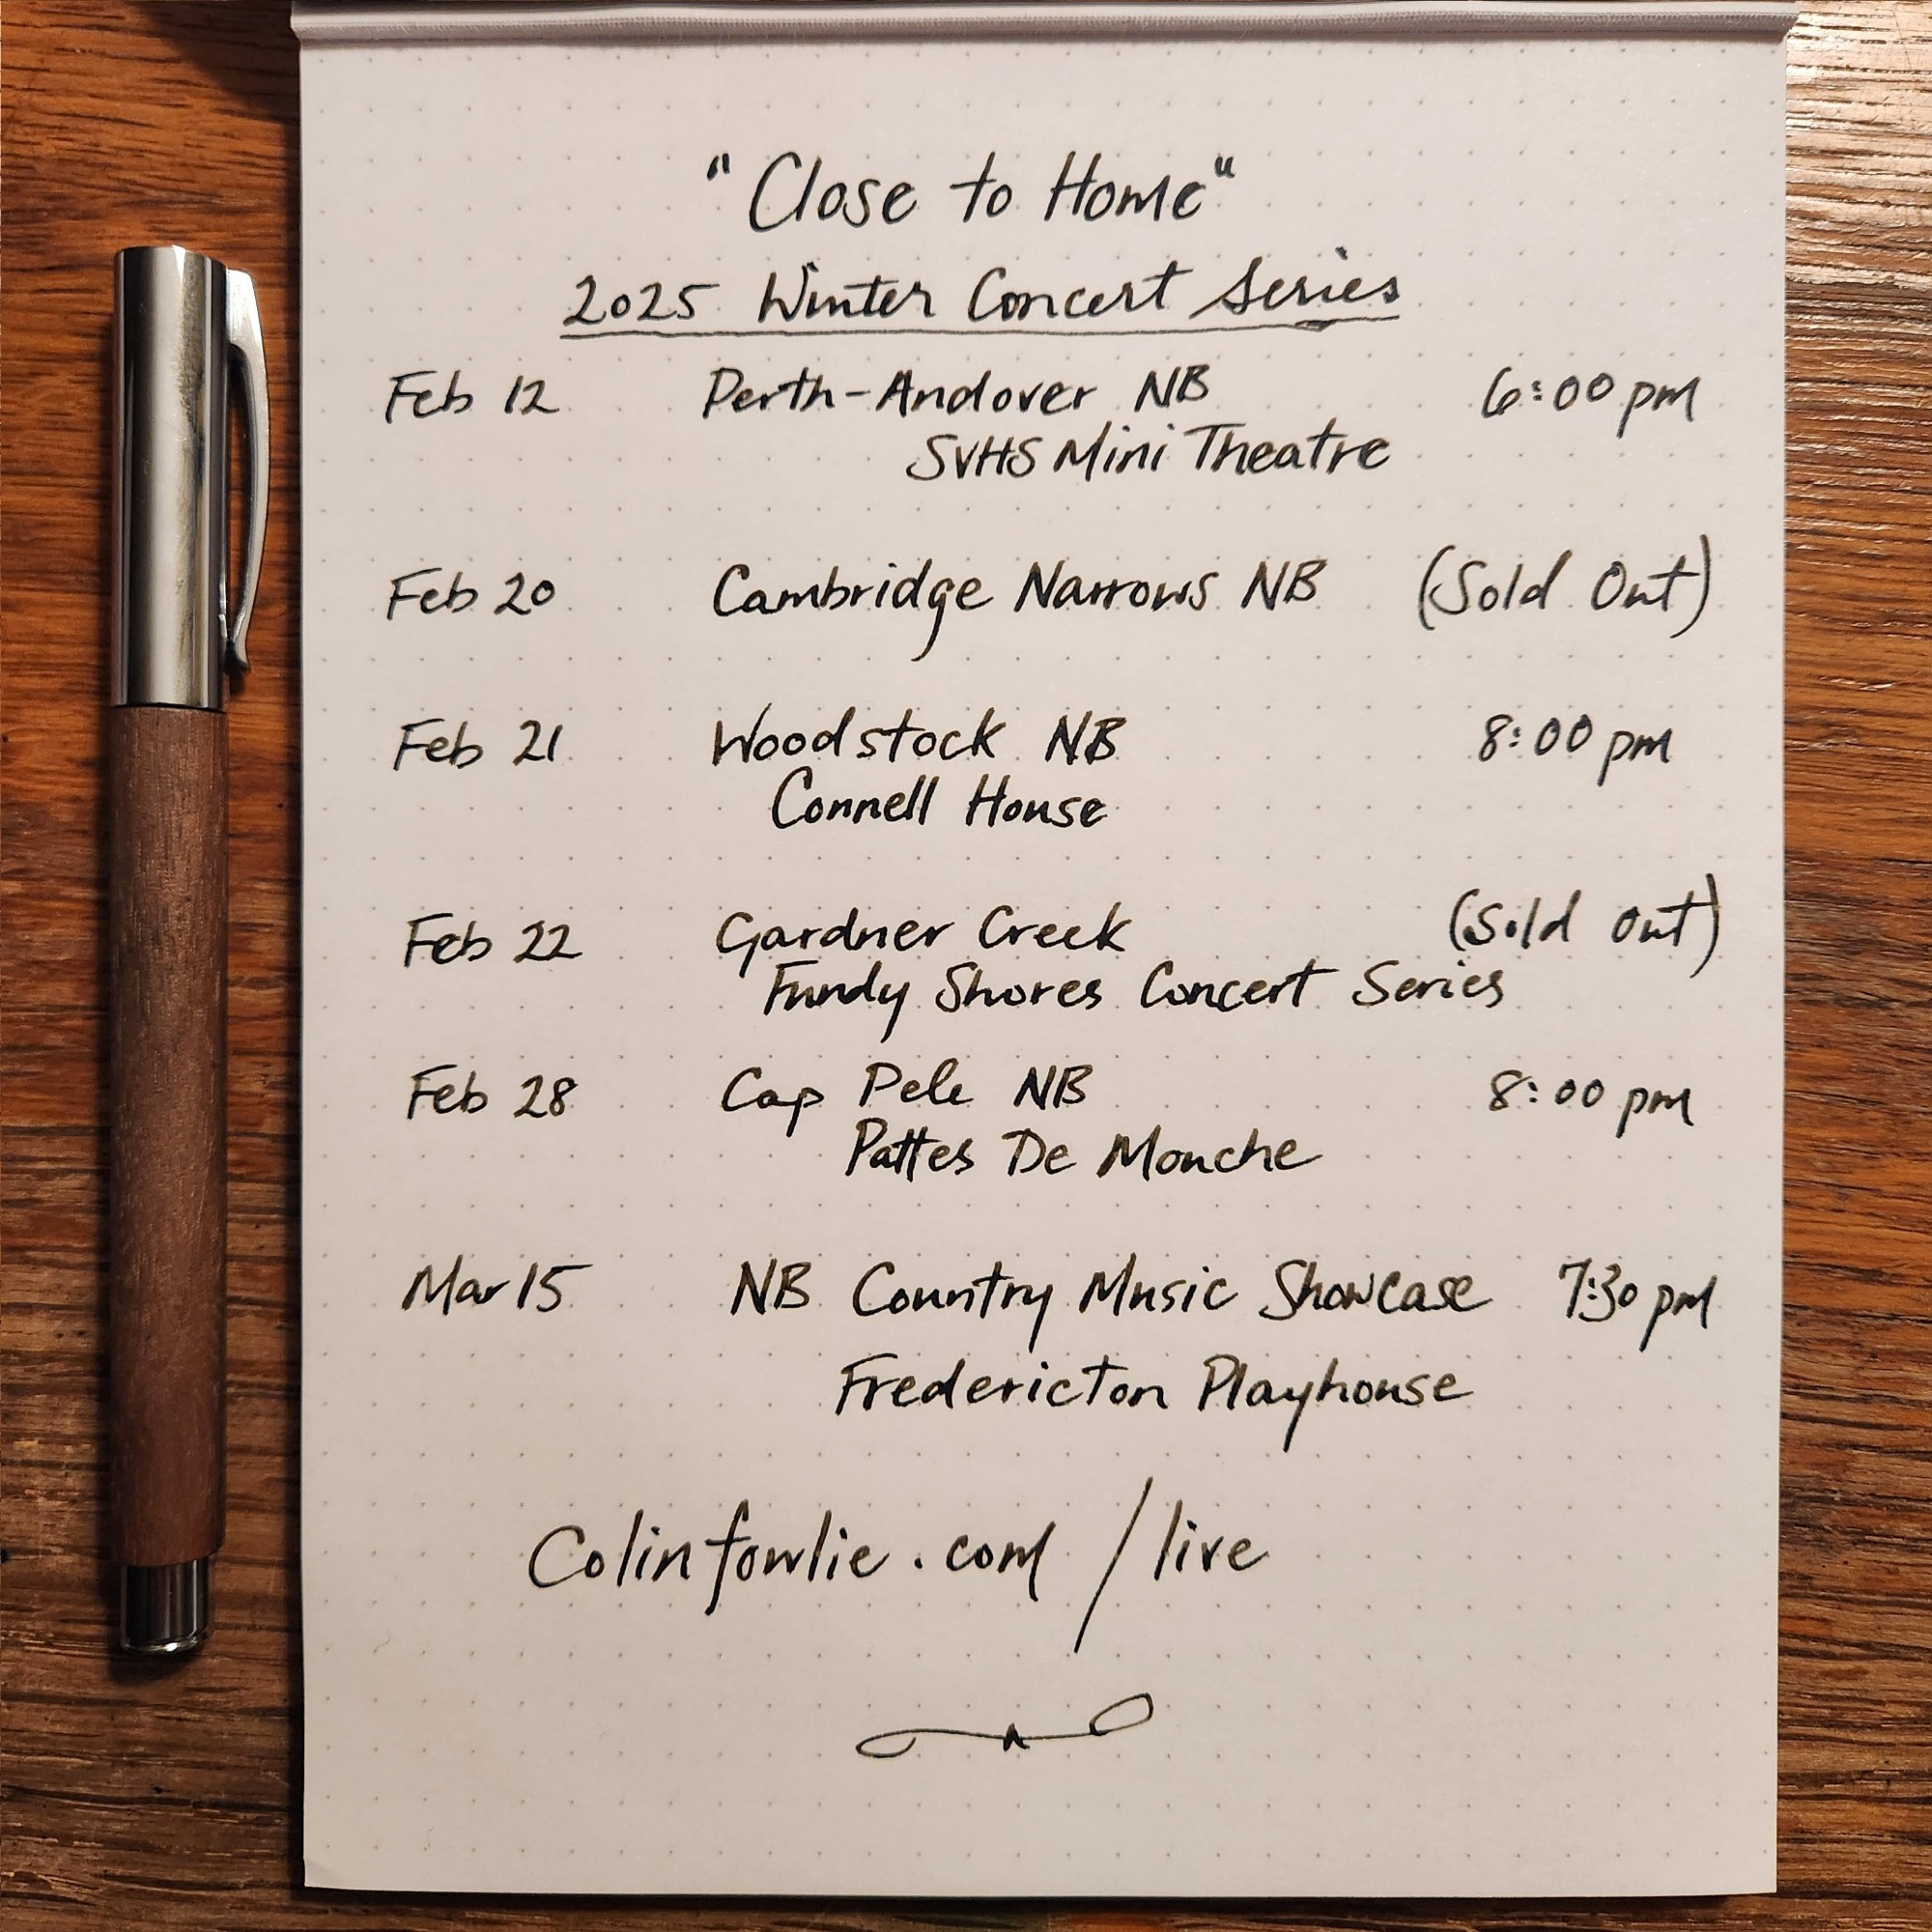 "Close to Home"
2025 Winter Concert Series
Feb 12 Perth-Andover NB 6:00 pm
SVHS Mini Theatre
Feb 20 Cambridge Narrows NB (Sold Out)
Feb 21 Woodstock NB 8:00 pm
Connell House
Feb 22 Gardner Creek (Sold Out)
Fundy Shores Concert Series
Feb 28 Cap Pele NB 8:00 pm
Pattes De Mouche
Mar 15 NB Country Music Showcase 7:30 pm
Fredericton Playhouse
Colinfowlie.com/live